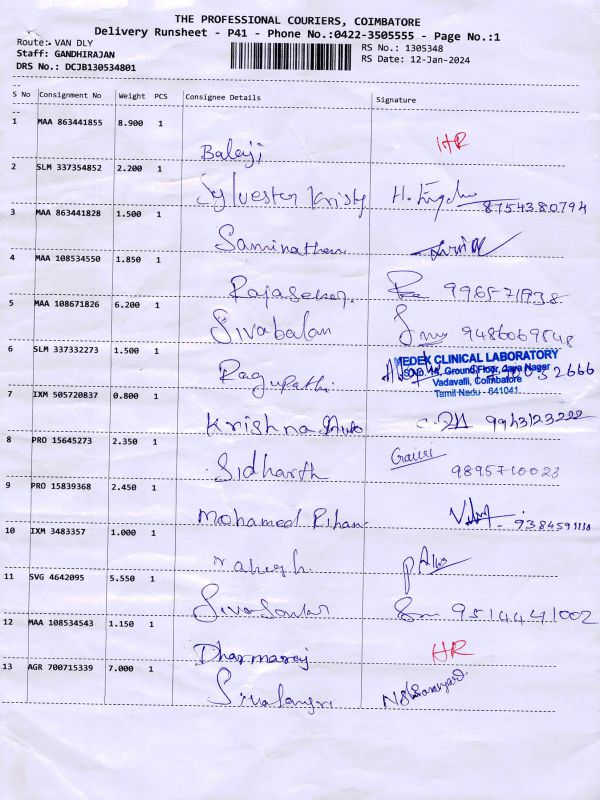 THE PROFESSIONAL COURIERS, COIMBATORE
Delivery Runsheet - P41 - Phone No.:0422-3505555 - Page No.:1
Route:- VAN DLY
RS No.: 1305348
Staff: GANDHIRAJAN
RS Date: 12-Jan-2024
DRS No.: DCJB130534801
S No Consignment No Weight PCS Consignee Details Signature
1 MAA 863441855 8.900 1 Balaji HR
2 SLM 337354852 2.200 1 Sylvester Kristy 8754380794
3 MAA 863441828 1.500 1 Saminathan
4 MAA 108534550 1.850 1 Rajasekar 9965771938
5 MAA 108671826 6.200 1 Sivabalan 9486069848
6 SLM 337332273 1.500 1 Ragupathi 2666
MEDEK CLINICAL LABORATORY
Ground Floor, Jaya Nagar
Vadavalli, Coimbatore
Tamil Nadu - 641041
7 IXM 505720837 0.800 1 Krishna 9943123222
8 PRO 15645273 2.350 1 Sidharth 9895710023
9 PRO 15839368 2.450 1 Mohamed Rihan 9384591110
10 IXM 3483357 1.000 1
11 SVG 4642095 5.550 1 9514441002
12 MAA 108534543 1.150 1 Dharmaraj HR
13 AGR 700715339 7.000 1